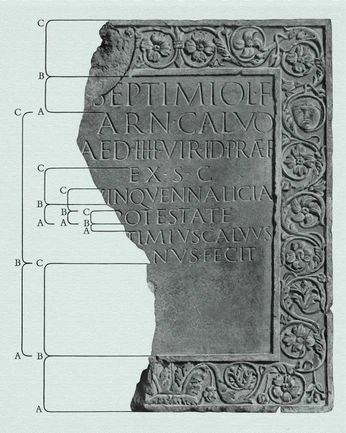 SEPTIMIO·L·F
ARN·CALVO
AED·IIII·VIR·I·D·PRAEF
EX·S·C
INQVENNALICIA
POTESTATE
TIMIVS·CALVVS
NVS·FECIT
C
B
C
A
C
C
B
B
C
A
A
B
A
B
C
A
B
A